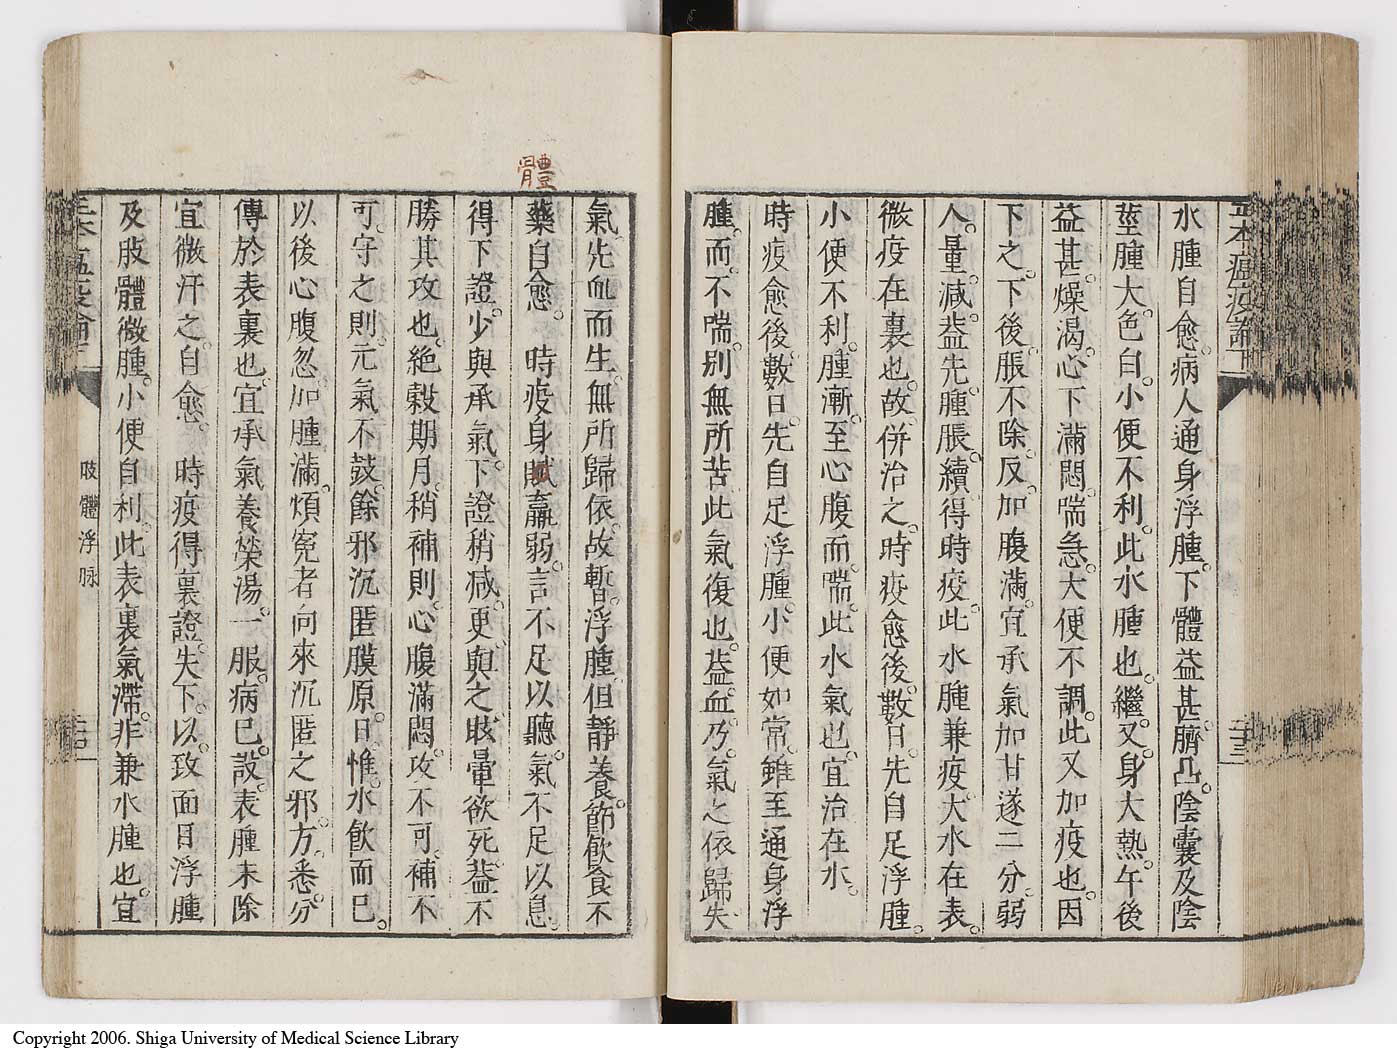 水腫自愈。病人通身浮腫。下體益甚。臍凸。陰囊及陰
莖腫大。色白。小便不利。此水腫也。繼又身大熱。午後
益甚。燥渴。心下滿悶。喘急。大便不調。此又加疫也。因
下之。下後。脹不除。反加腹滿。宜承氣加甘遂二分。弱
人。量減。葢先腫脹。續得時疫。此水腫兼疫。大水在表。
微疫在裏也。故併治之。時疫愈後。數日。先自足浮腫。
小便不利。腫漸至心腹而喘。此水氣也。宜治在水。
時疫愈後。數日。先自足浮腫。小便如常。雖至通身浮
腫。而不喘。別無所苦。此氣復也。葢血乃氣之依歸。失
氣先血而生。無所歸依。故暫浮腫。但靜養。節飲食。不
體
藥自愈。 時疫身賦羸弱。言不足以聽。氣不足以息。
得下證。少與承氣。下證稍减。更與之。眩暈欲死。葢不
勝其攻也。絶穀期月。稍補則心腹滿悶。攻不可。補不
可。守之則元氣不鼓。餘邪沉匿膜原。日惟水飲而已。
以後心腹忽加腫滿。煩寃者。向來沉匿之邪。方悉分
傳於表裏也。宜承氣養榮湯。一服病已。設表腫未除
宜微汗之。自愈。 時疫得裏證。失下。以致面目浮腫
及肢體微腫。小便自利。此表裏氣滯。非兼水腫也。宜
肢體浮脉
Copyright 2006. Shiga University of Medical Science Library